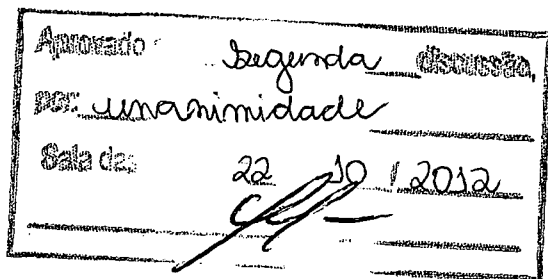 Aprovado Segunda discussão,
por: unanimidade
Sala das 22 10 / 2012